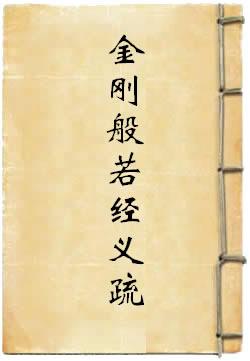 金刚般若经义疏